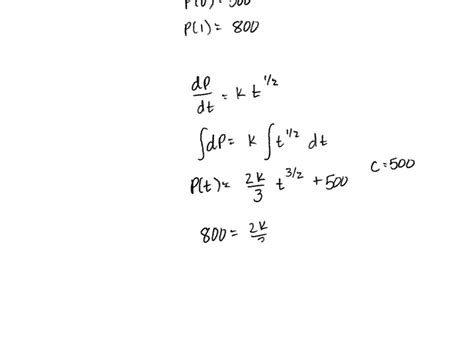 P(0) = 500
P(1) = 800
dP/dt = k t^1/2
∫dP = k ∫ t^1/2 dt
P(t) = 2k/3 t^3/2 + 500 C = 500
800 = 2k/3